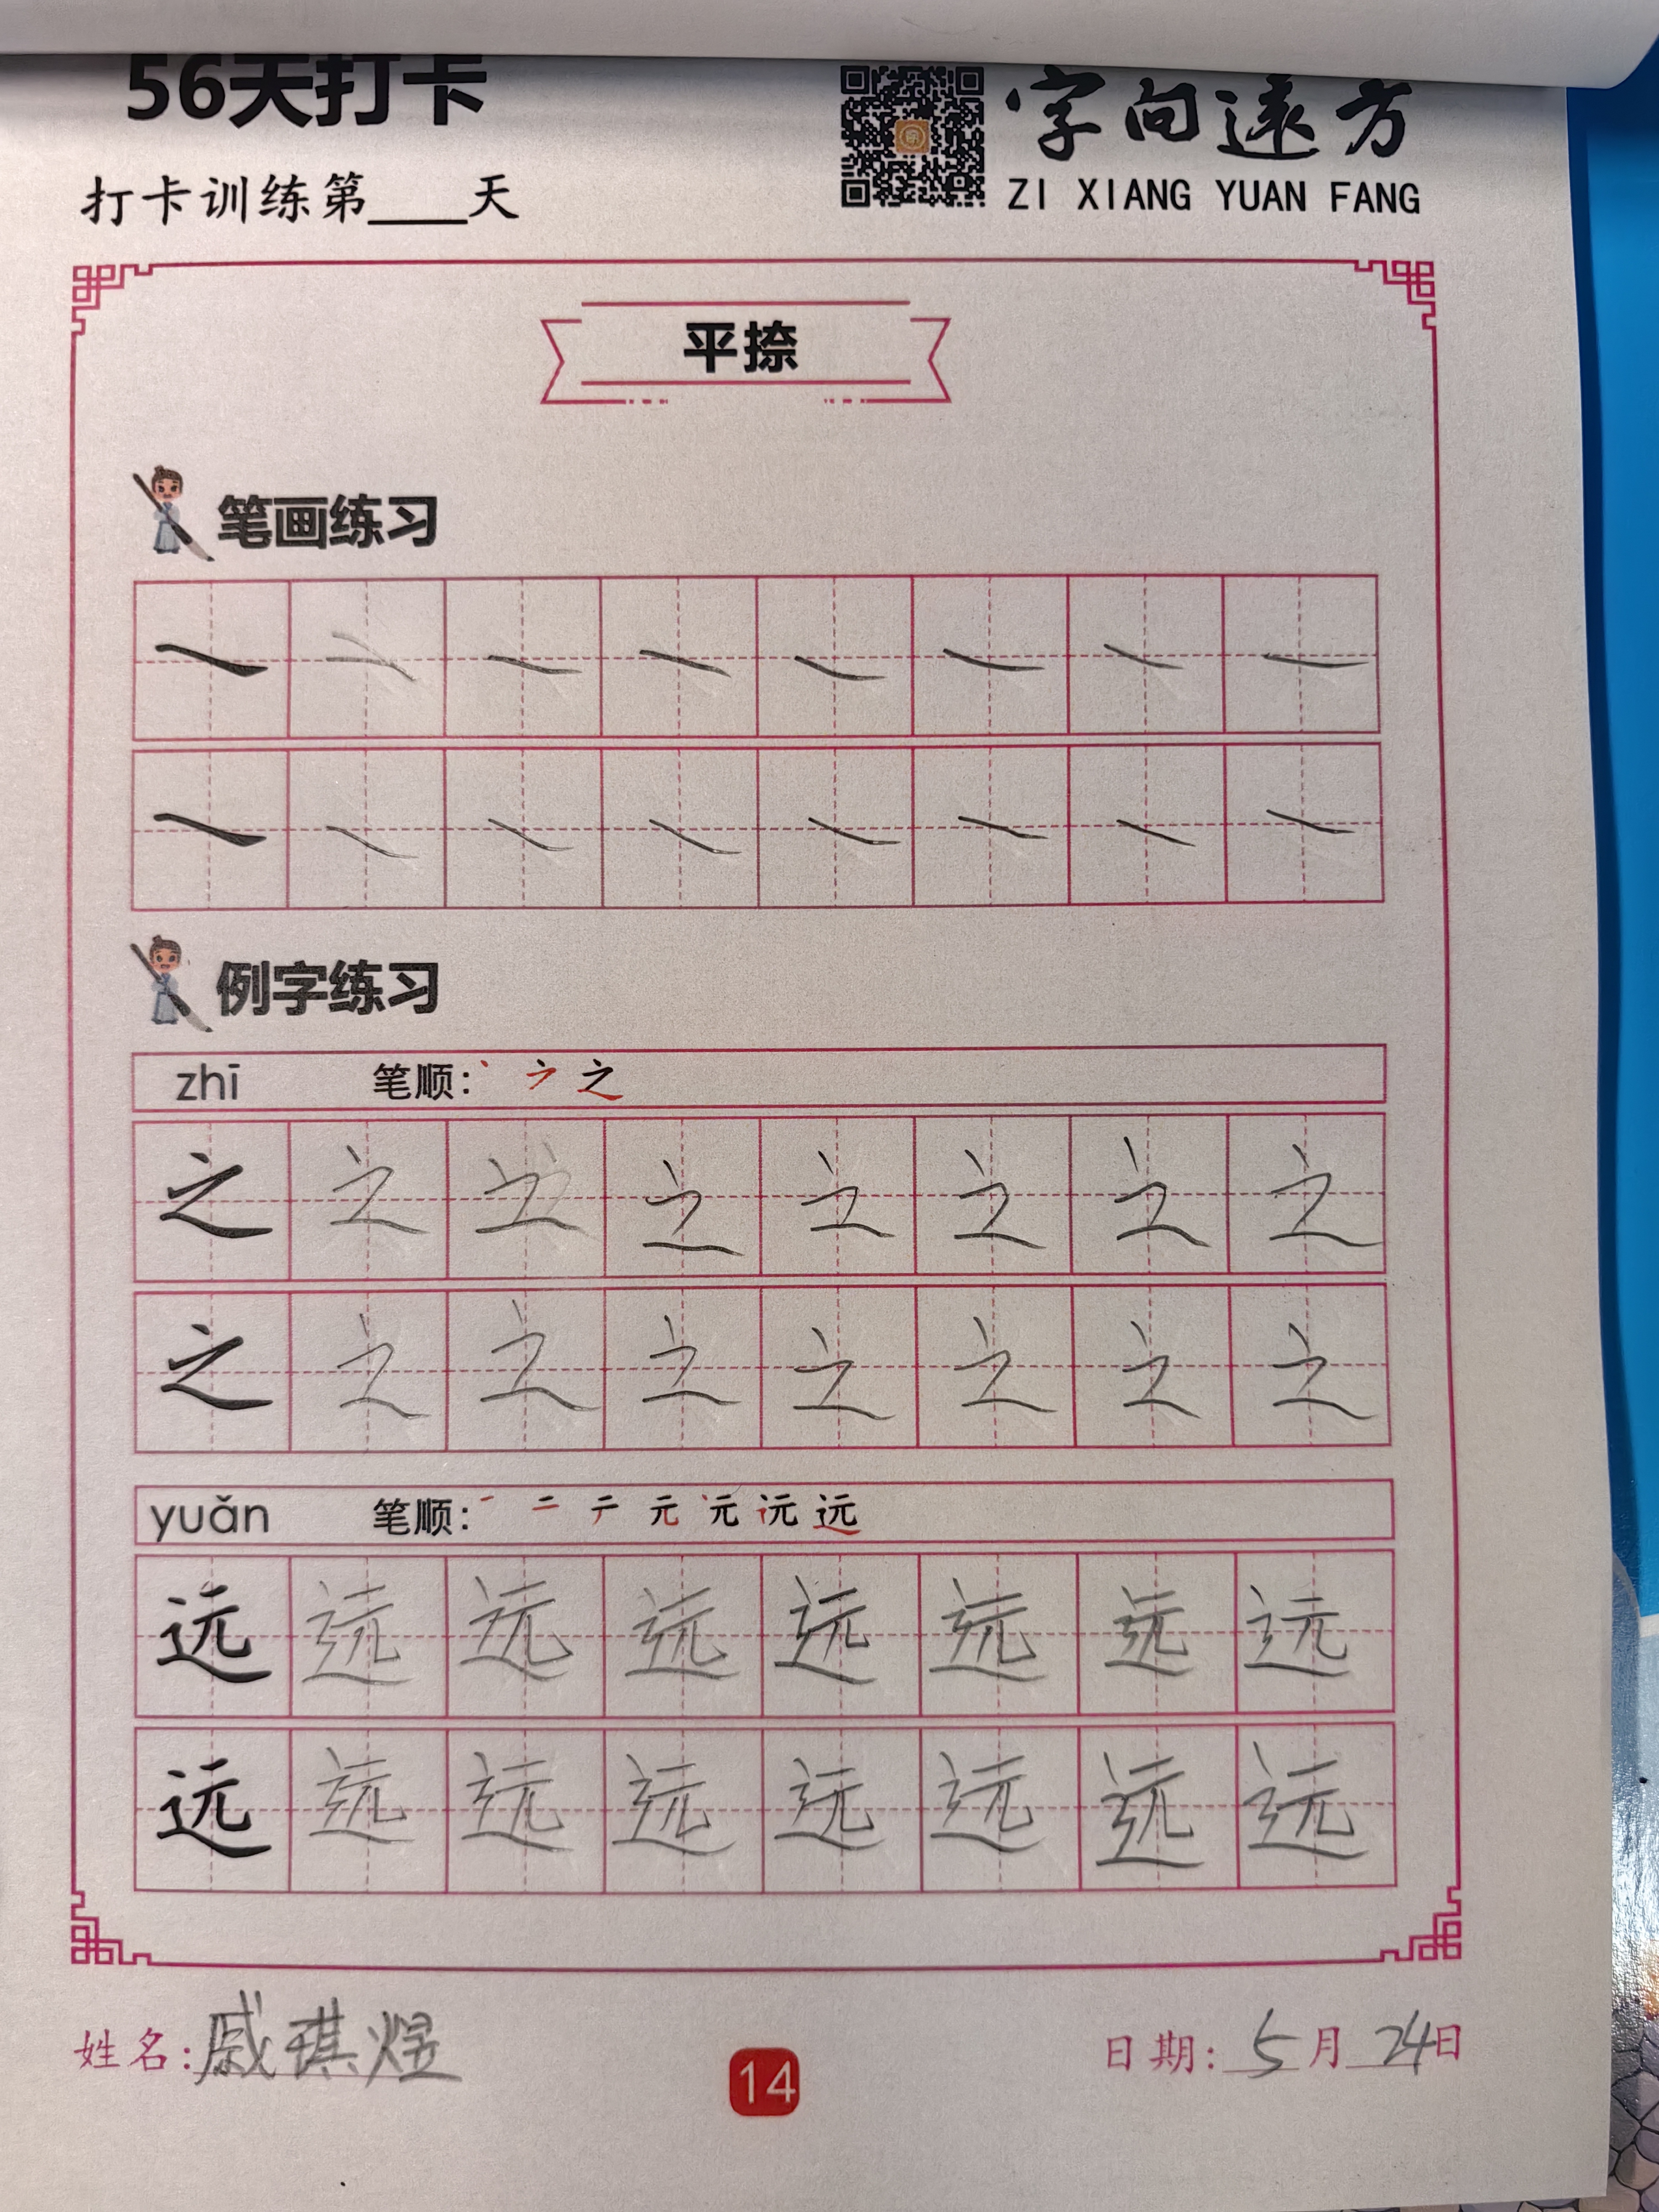 56天打卡
字向遠方
打卡训练第____天
ZI XIANG YUAN FANG
平捺
笔画练习
例字练习
zhī 笔顺: 丶 之
之 之 之 之 之 之 之 之
之 之 之 之 之 之 之 之
yuǎn 笔顺: 一 二 元 元 远
远 远 远 远 远 远 远 远
远 远 远 远 远 远 远 远
姓名: 戚琪煜
14
日期: 5月24日